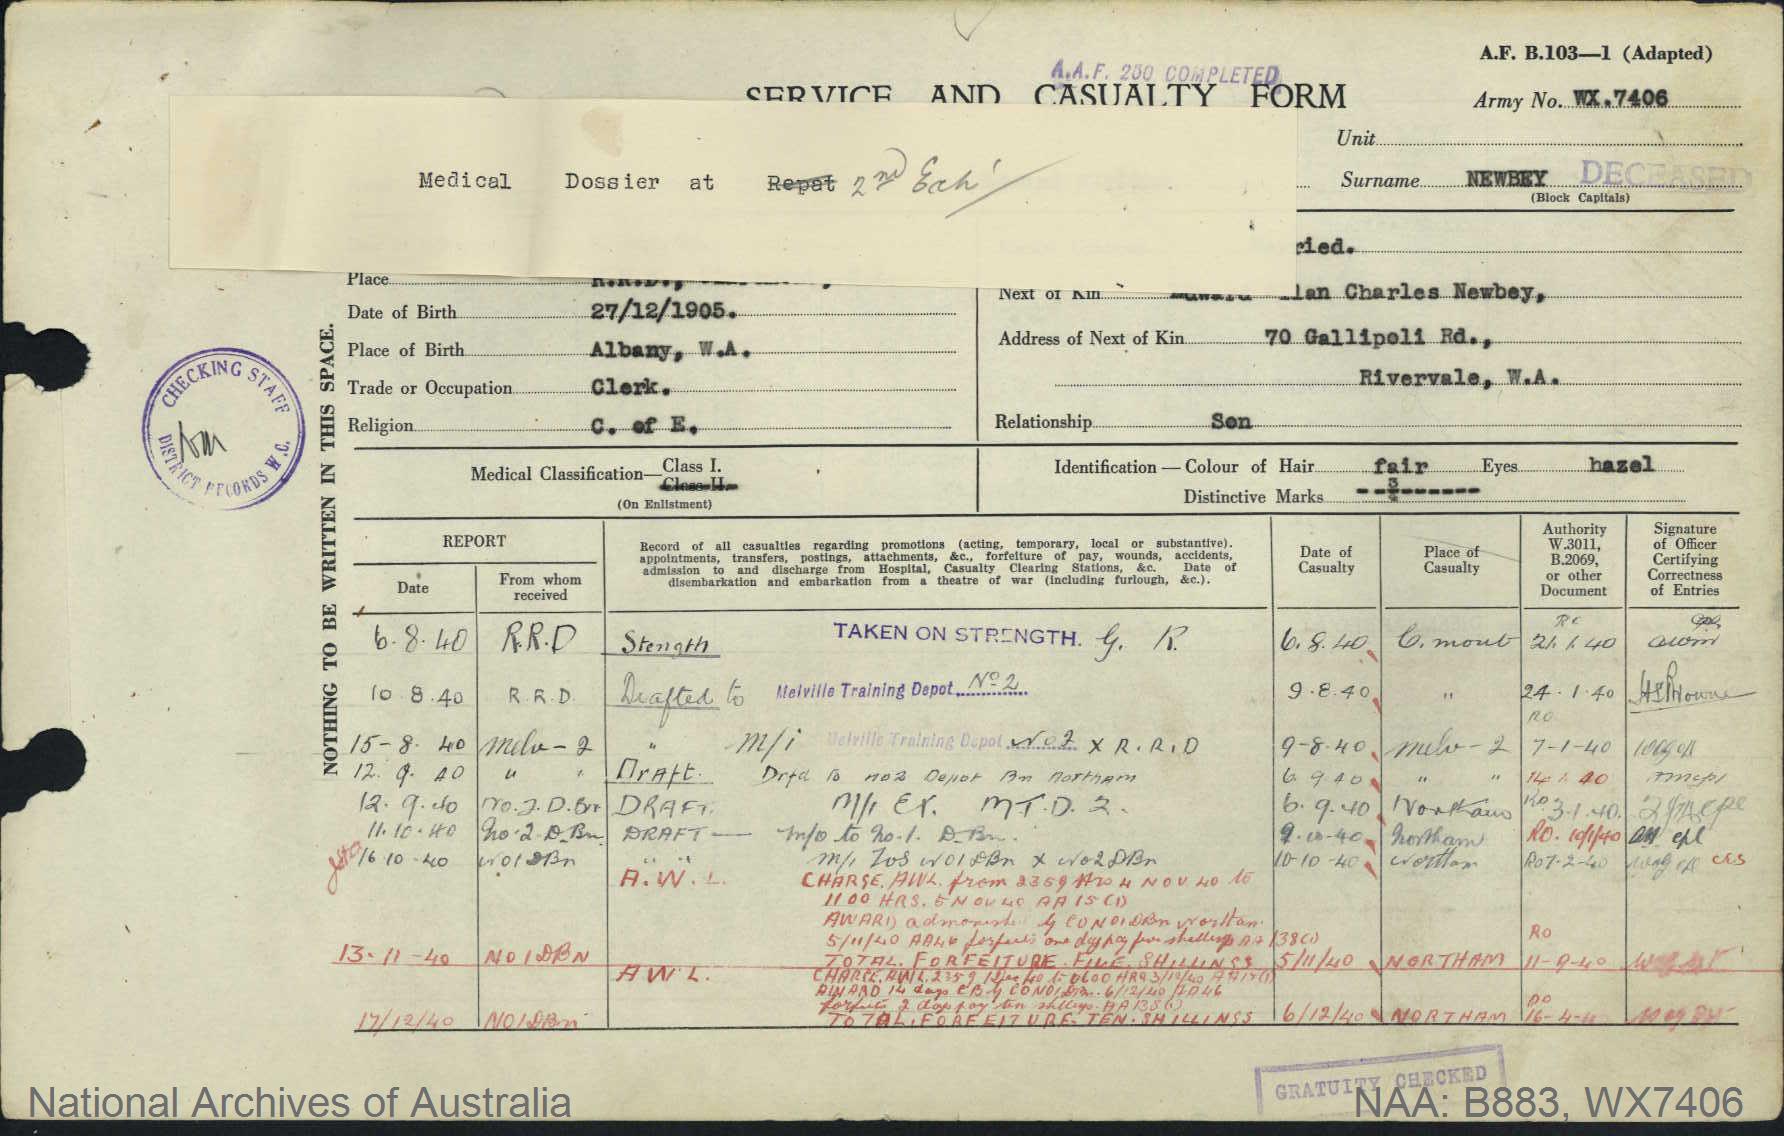 A.F. B.103—1 (Adapted)
A.A.F. 250 COMPLETED
SERVICE AND CASUALTY FORM
Army No. WX.7406
Unit
Medical Dossier at Repat 2nd Ech
Surname NEWBEY DECEASED
(Block Capitals)
ried.
Place
Next of Kin lan Charles Newbey,
Date of Birth 27/12/1905.
Address of Next of Kin 70 Gallipoli Rd.,
Place of Birth Albany, W.A.
Rivervale, W.A.
Trade or Occupation Clerk.
Religion C. of E.
Relationship Son
CHECKING STAFF
DISTRICT RECORDS W.C.
NOTHING TO BE WRITTEN IN THIS SPACE.
Medical Classification— Class I.
Class II.
(On Enlistment)
Identification — Colour of Hair fair Eyes hazel
Distinctive Marks
REPORT
Date
From whom received
Record of all casualties regarding promotions (acting, temporary, local or substantive).
appointments, transfers, postings, attachments, &c., forfeiture of pay, wounds, accidents,
admission to and discharge from Hospital, Casualty Clearing Stations, &c. Date of
disembarkation and embarkation from a theatre of war (including furlough, &c.).
Date of Casualty
Place of Casualty
Authority W.3011, B.2069, or other Document
Signature of Officer Certifying Correctness of Entries
6.8.40 R.R.D Stength TAKEN ON STRENGTH. G. R. 6.8.40 C. mont 21.1.40
10.8.40 R.R.D. Drafted to Melville Training Depot No 2 9.8.40 " 24.1.40
15-8.40 Melv-2 " M/i Melville Training Depot No 2 x R.R.D 9-8-40 Melv-2 RO 7-1-40
12.9.40 " " Draft. Drtd to no2 Depot Bn Northam 6.9.40 " " 14.1.40
12.9.40 No.2.D.Bn DRAFT. M/i EX. M.T.D.2. 6.9.40 Northam RO 3.1.40
11.10.40 No.2 D.Bn DRAFT — m/o to No.1. D.Bn. 9-10-40 Northam RO. 10/1/40
16.10.40 No1DBn " " m/i TOS No1DBn x No2DBn 10-10-40 Northam RO 7-2-40
A.W.L. CHARGE. AWL. from 2359 Hrs 4 NOV 40 to
1100 HRS. 5 NOV 40 AA15(1)
AWARD admonished by CO NO1DBn Northam
5/11/40 AA46 forfeits one days pay five shillings AA138(1)
13-11-40 NO1DBN TOTAL. FORFEITURE. FIVE SHILLINGS 5/11/40 NORTHAM RO 11-9-40
A.W.L. CHARGE. AWL. 2359 1 Dec 40 to 0600 HRS 3/12/40 AA15(1)
AWARD 14 days CB by CO NO1DBn. 6/12/40 AA46
forfeits 2 days pay ten shillings AA138(1)
17/12/40 NO1DBn TOTAL. FORFEITURE. TEN. SHILLINGS 6/12/40 NORTHAM RO 16-4-40
GRATUITY CHECKED
National Archives of Australia
NAA: B883, WX7406